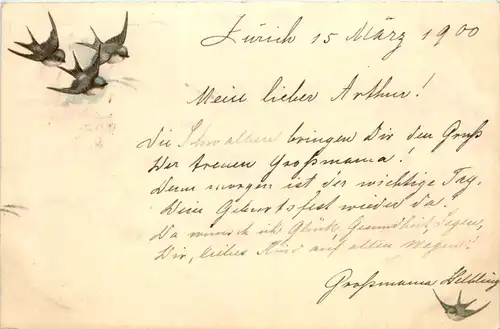 Zürich 15 März 1900
Mein lieber Arthur!
Die Schwalben bringen Dir den Gruß
Der treuen Großmama!
Denn morgen ist der wichtige Tag,
Dein Geburtsfest wieder da!
Da wünsch ich Glück, Gesundheit, Segen,
Dir, liebes Kind auf allen Wegen!
Großmama Helbling